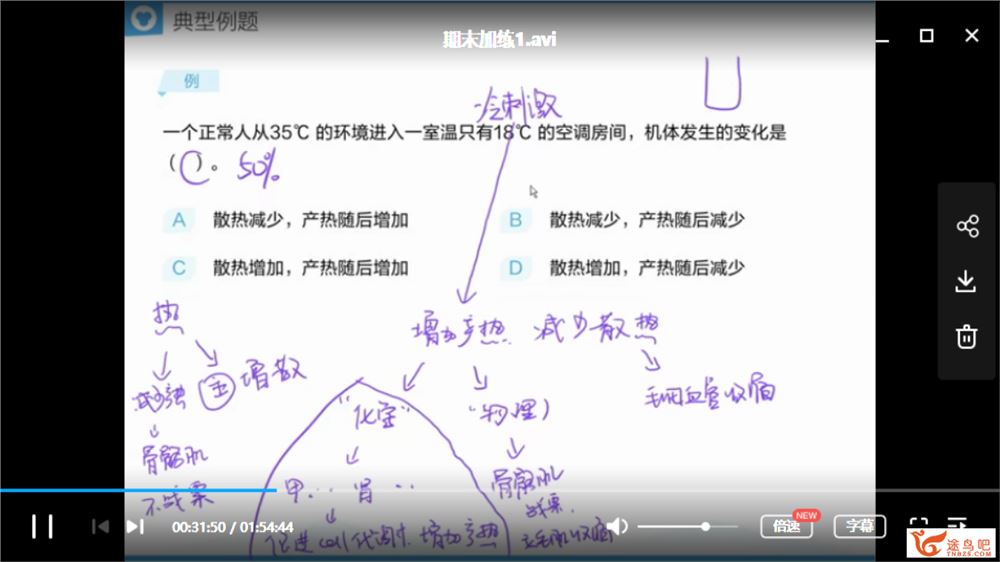 典型例题
期末加练1.avi
例
冷刺激
一个正常人从35℃ 的环境进入一室温只有18℃ 的空调房间，机体发生的变化是
（C）。 50%
A 散热减少，产热随后增加
B 散热减少，产热随后减少
C 散热增加，产热随后增加
D 散热增加，产热随后减少
热
增加产热 减少散热
主 增散
"化学"
(物理)
毛细血管收缩
骨骼肌
不战栗
甲… 肾…
骨骼肌
战栗.
促进cell代谢 增加产热
立毛肌收缩
00:31:50 / 01:54:44
倍速
NEW
字幕
途鸟吧
TNBZS.COM